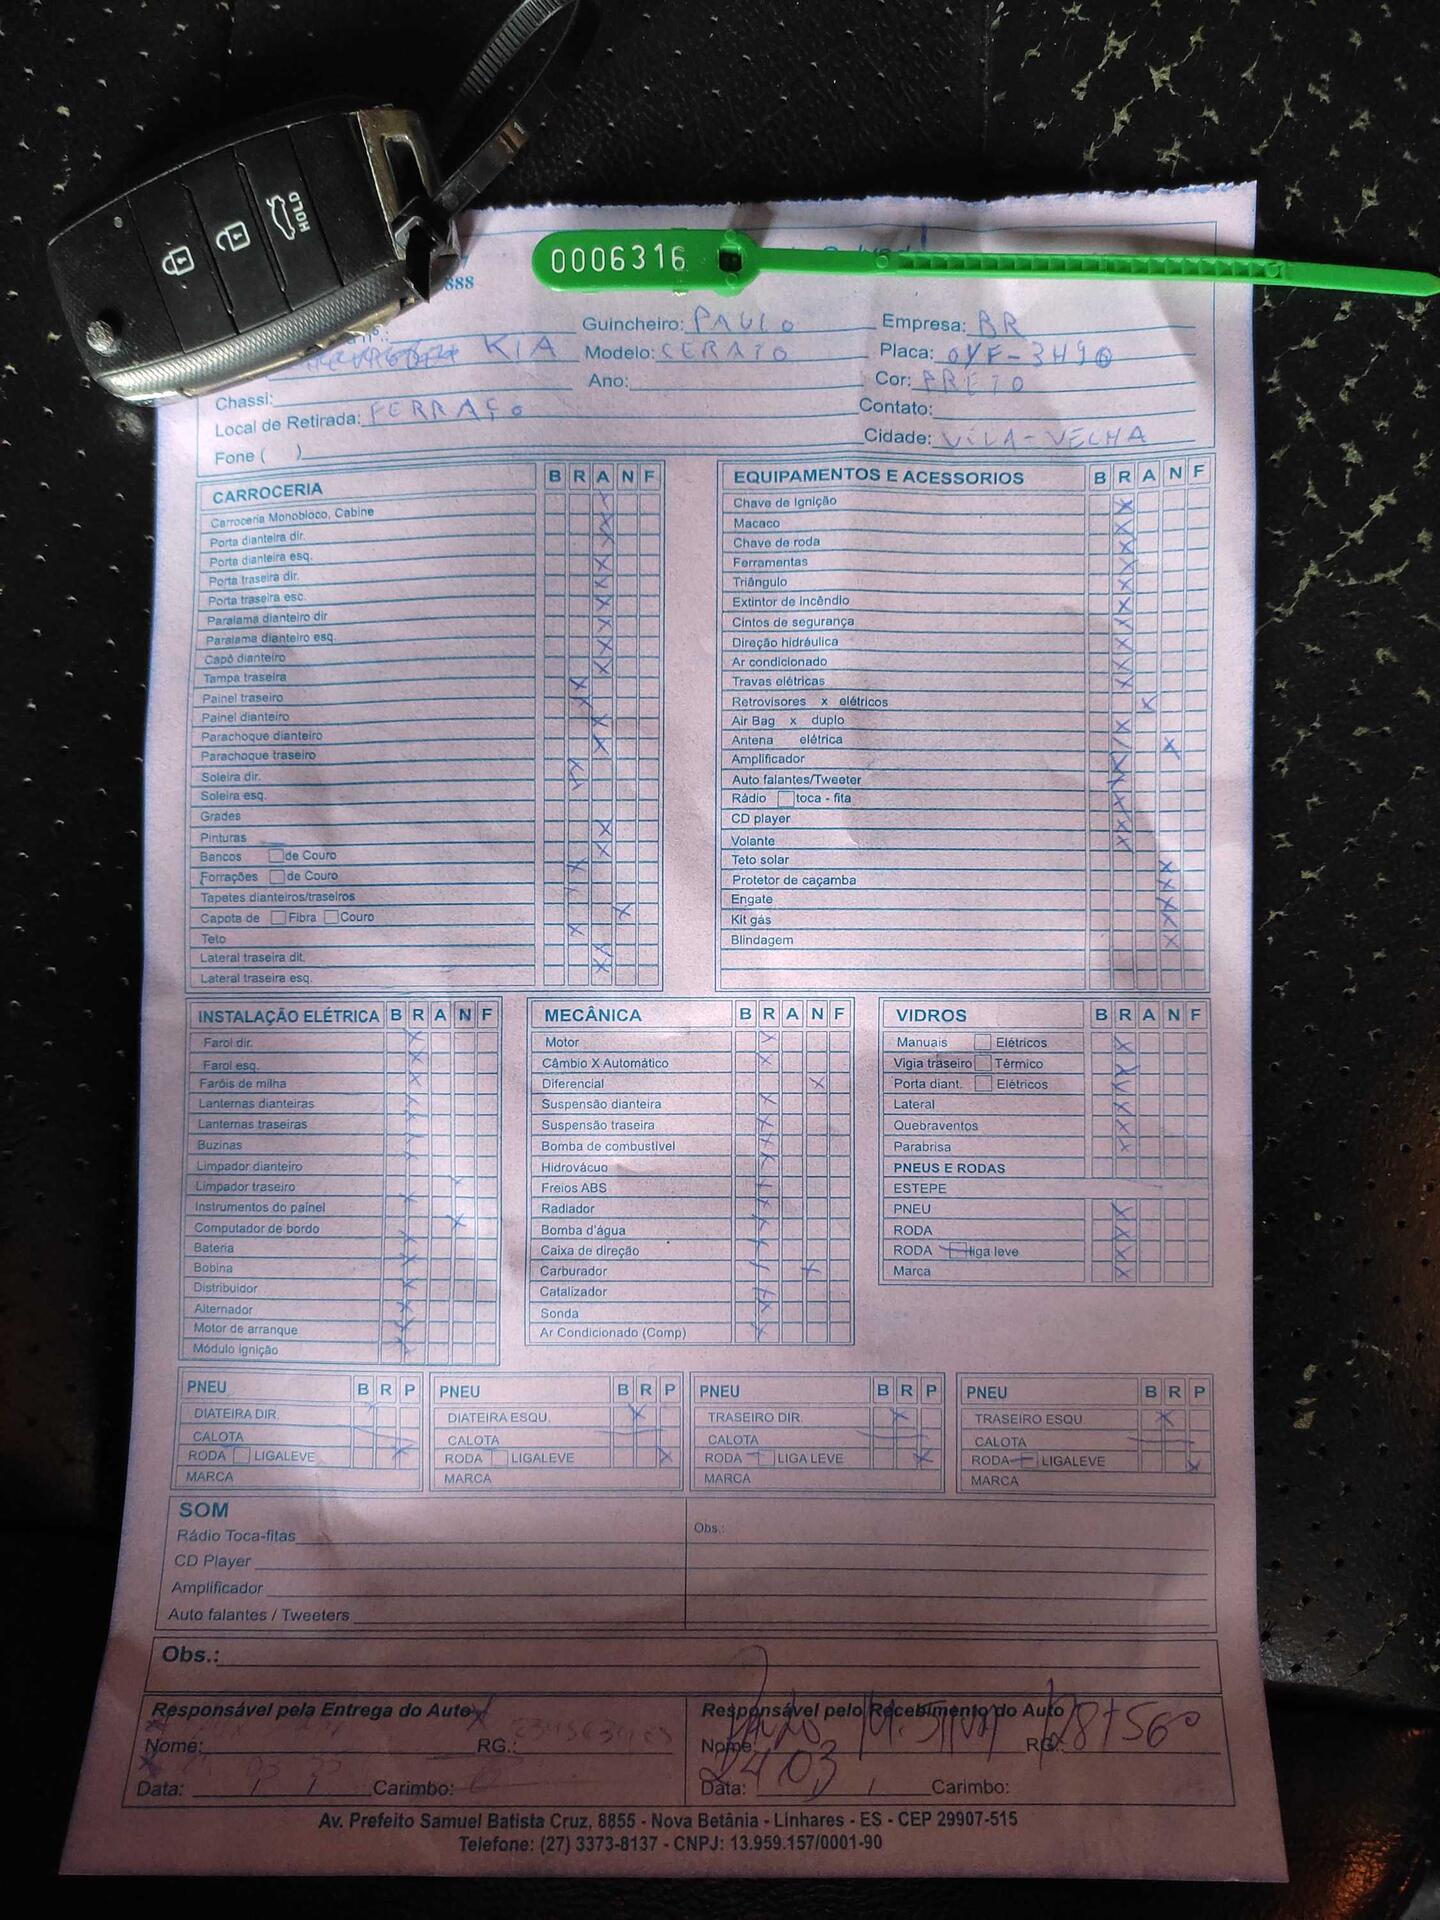 HOLD
0006316
888
Guincheiro: PAULO Empresa: BR
KIA Modelo: CERATO Placa: OYF-3H90
Ano: Cor: PRETO
Chassi: Contato:
Local de Retirada: FERRAÇO Cidade: VILA-VELHA
Fone ( )
CARROCERIA B R A N F
Carroceria Monobloco, Cabine X
Porta dianteira dir. X
Porta dianteira esq. X
Porta traseira dir. X
Porta traseira esc. X
Paralama dianteiro dir X
Paralama dianteiro esq. X
Capô dianteiro X
Tampa traseira X
Painel traseiro X
Painel dianteiro X
Parachoque dianteiro X
Parachoque traseiro X
Soleira dir. X
Soleira esq. X
Grades
Pinturas X
Bancos de Couro X
Forrações de Couro X
Tapetes dianteiros/traseiros
Capota de Fibra Couro X
Teto X
Lateral traseira dit. X
Lateral traseira esq. X
EQUIPAMENTOS E ACESSORIOS B R A N F
Chave de Ignição X
Macaco X
Chave de roda X
Ferramentas X
Triângulo X
Extintor de incêndio X
Cintos de segurança X
Direção hidráulica X
Ar condicionado X
Travas elétricas X
Retrovisores x elétricos X
Air Bag x duplo X
Antena elétrica X
Amplificador X
Auto falantes/Tweeter X
Rádio toca - fita X
CD player X
Volante X
Teto solar X
Protetor de caçamba X
Engate X
Kit gás X
Blindagem X
INSTALAÇÃO ELÉTRICA B R A N F
Farol dir. X
Farol esq. X
Faróis de milha X
Lanternas dianteiras X
Lanternas traseiras X
Buzinas X
Limpador dianteiro X
Limpador traseiro X
Instrumentos do painel X
Computador de bordo X
Bateria X
Bobina X
Distribuidor X
Alternador X
Motor de arranque X
Módulo Ignição X
MECÂNICA B R A N F
Motor X
Câmbio X Automático X
Diferencial X
Suspensão dianteira X
Suspensão traseira X
Bomba de combustível X
Hidrovácuo X
Freios ABS X
Radiador X
Bomba d'água X
Caixa de direção X
Carburador X
Catalizador X
Sonda X
Ar Condicionado (Comp) X
VIDROS B R A N F
Manuais Elétricos X
Vigia traseiro Térmico X
Porta diant. Elétricos X
Lateral X
Quebraventos X
Parabrisa X
PNEUS E RODAS
ESTEPE
PNEU X
RODA X
RODA liga leve X
Marca X
PNEU B R P
DIATEIRA DIR. X
CALOTA
RODA LIGALEVE X
MARCA
PNEU B R P
DIATEIRA ESQU. X
CALOTA
RODA LIGALEVE X
MARCA
PNEU B R P
TRASEIRO DIR. X
CALOTA
RODA LIGA LEVE X
MARCA
PNEU B R P
TRASEIRO ESQU X
CALOTA
RODA LIGALEVE X
MARCA
SOM
Rádio Toca-fitas
CD Player
Amplificador
Auto falantes / Tweeters
Obs.:
Obs.:
Responsável pela Entrega do Auto X
Nome: RG.:
Data: Carimbo:
Responsável pelo Recebimento do Auto
Nome: RG:
Data: 24 03 Carimbo:
Av. Prefeito Samuel Batista Cruz, 8855 - Nova Betânia - Linhares - ES - CEP 29907-515
Telefone: (27) 3373-8137 - CNPJ: 13.959.157/0001-90